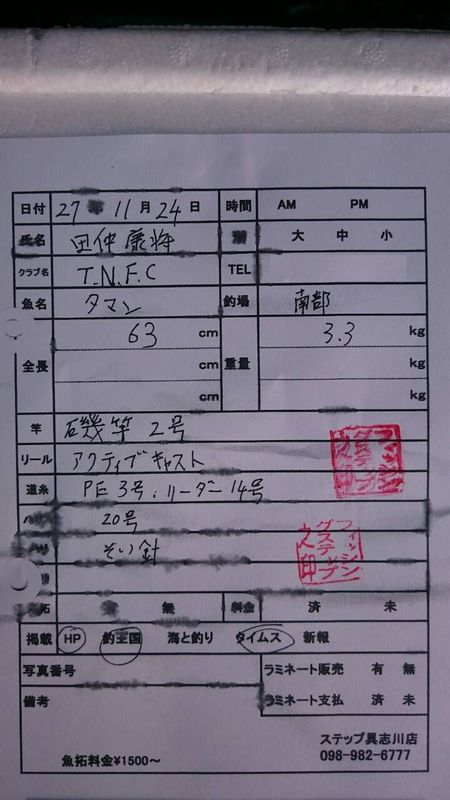 日付 27年 11月 24日 時間 AM PM
氏名 田仲康将 潮 大 中 小
クラブ名 T.N.F.C TEL
魚名 タマン 釣場 南部
全長 63 cm 重量 3.3 kg
cm kg
cm kg
竿 磯竿 2号
リール アクティブキャスト
道糸 PE 3号.リーダー14号
20号
ぞい針
フィッシングステップ之印
フィッシングステップ之印
拓 無 料金 済 未
掲載 HP 釣王国 海と釣り タイムス 新報
写真番号 ラミネート販売 有 無
備考 ラミネート支払 済 未
ステップ具志川店
魚拓料金¥1500～ 098-982-6777